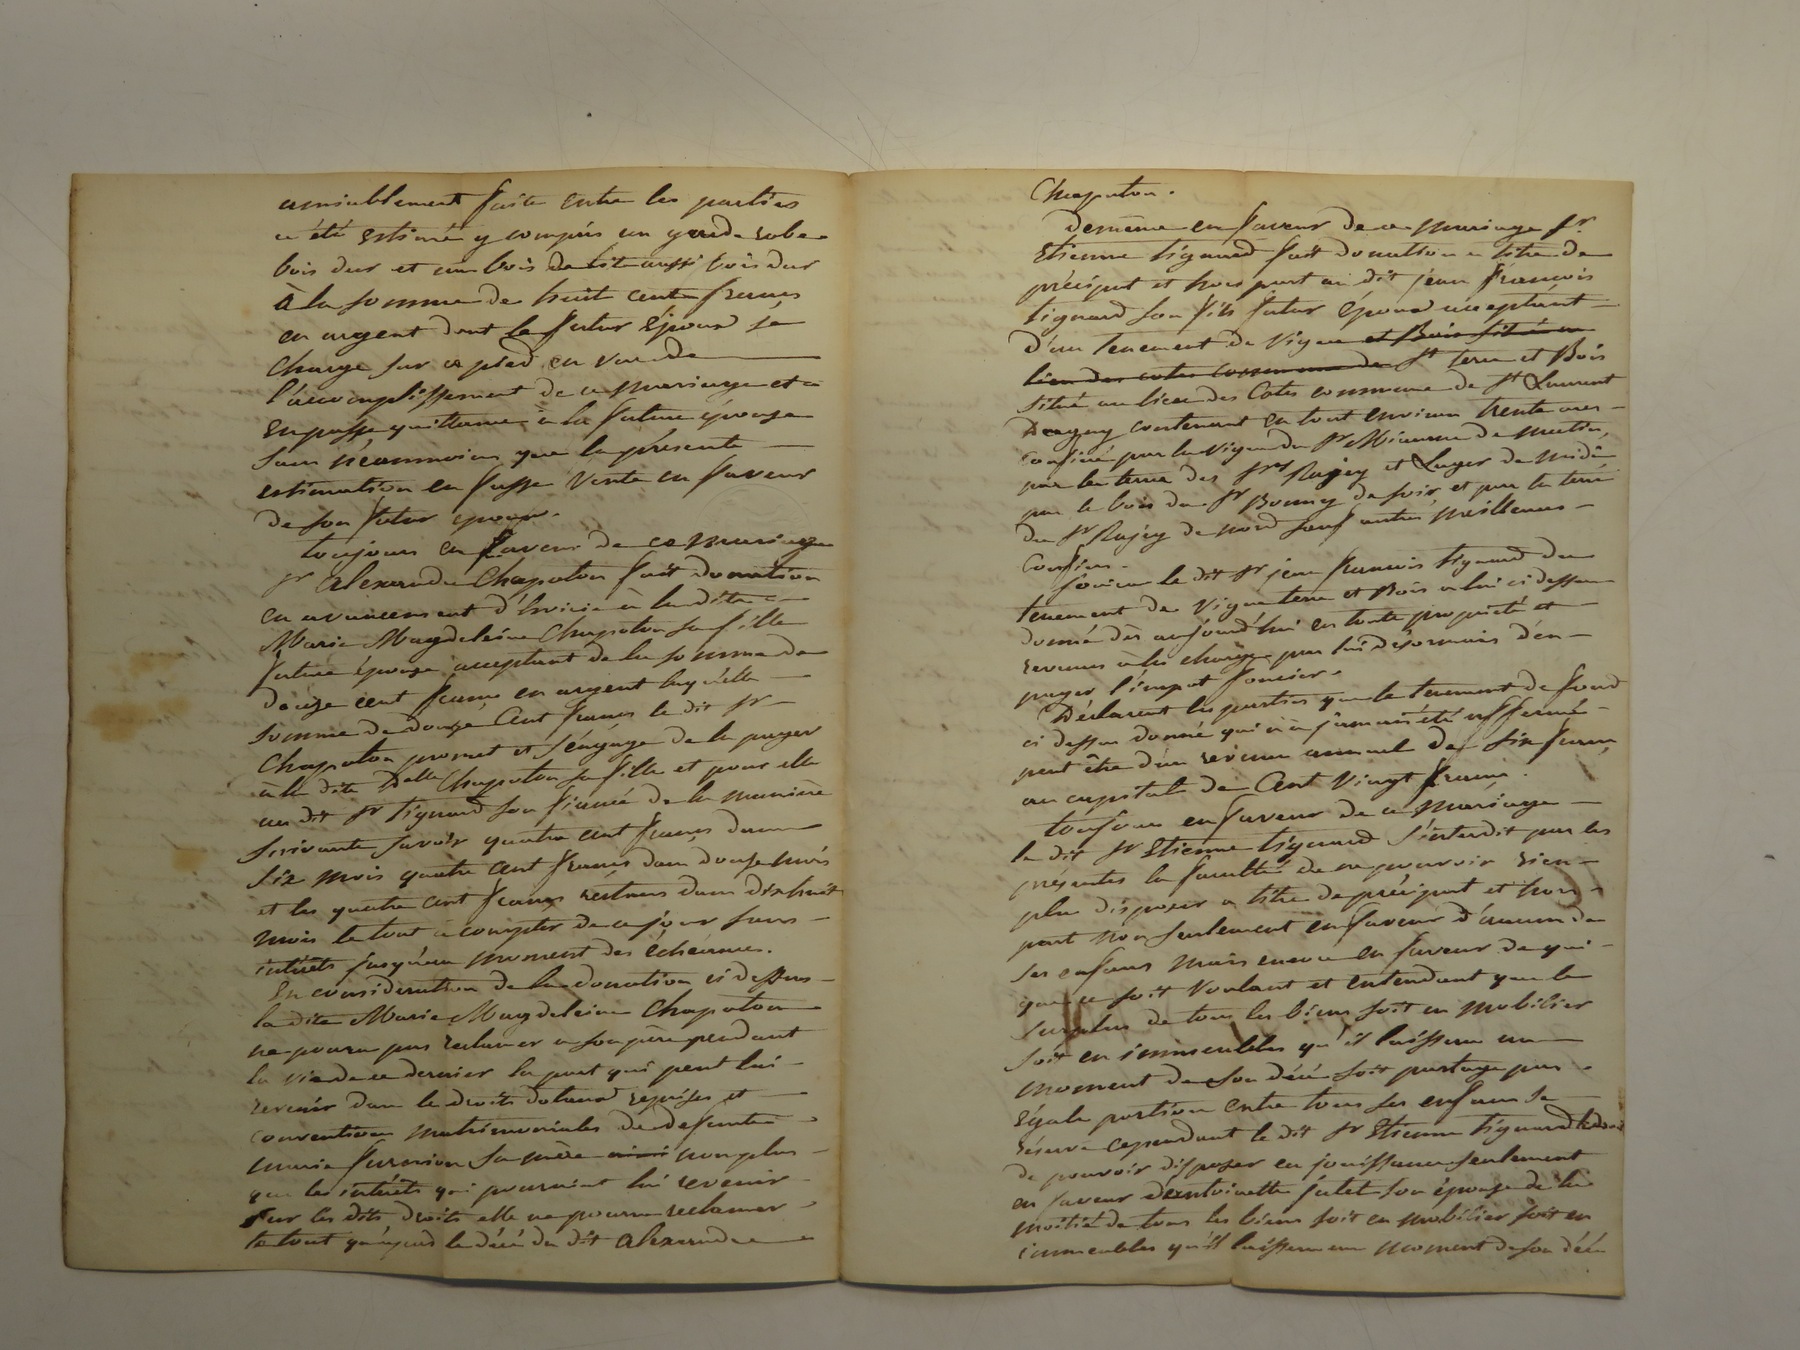 amiablement faite entre les parties
a été estimé y compris un garde robe
bois dur et un bois de lit aussi bois dur
à la somme de huit cent francs
en argent dont le futur époux se
charge sur ce pied en vue de
l'accomplissement de ce mariage et a
en passe quittance à la future épouse
sans néanmoins que la présente
estimation en fasse vente en faveur
de son futur époux.
toujours en faveur de ce mariage
Sr alexandre Chapoton fait donation
en avancement d'hoirie à la dite
Marie Magdeleine Chapoton sa fille
future épouze acceptant de la somme de
douze cent francs en argent laquelle
somme de douze Cent francs le dit Sr
Chapoton promet et s'engage de la payer
à la dite Delle Chapoton sa fille et pour elle
au dit Sr tignard son fiancé de la manière
suivante savoir quatre cent francs dans
six mois quatre cent francs dans douze mois
et les quatre cent francs restans dans dix huit
mois le tout a compter de ce jour sans
intérêts jusqu'au moment des échéances.
En considération de la donation ci dessus
la dite Marie Magdeleine Chapoton
ne pourra pas reclamer a son père pendant
la vie de ce dernier la part qui peut lui
revenir dans le droits dotaux reprises et
conventions matrimoniales de defunte
marie sa mère non plus
que les intérêts qui pourraient lui revenir
sur les dits droits elle ne pourra reclamer
le tout qu'après le décé du dit alexandre
Chapoton.
Demême en faveur de ce mariage Sr
Etienne tignard fait donation a titre de
préciput et hors part au dit jean françois
tignard son fils futur époux acceptant
d'un tenement de vigne et Bois situé au
lieu des cotes commune de St terre et Bois
situé au lieu des Cotes commune de St Laurent
contenant en tout environ trente ares
confiné par la vigne du Sr de matin,
par la terre des Srs Rajey et Luger de midi
par le bois du Sr Bonny de soir, et par la terre
du Sr Rajey de nord sauf autres meilleurs
Confins.
Jouira le dit Sr jean francois tignard du
tenement de vigne terre et Bois a lui ci dessus
donné dès aujourd'hui en toute propriété et
revenus à la charge par lui désormais d'en
payer l'impot foncier.
Déclarent les parties que le tenement de fond
ci dessus donné qui n'a jamais été affermé
peut être d'un revenu annuel de six francs
au capital de Cent vingt francs.
toujours en faveur de ce mariage
le dit Sr Etienne tignard s'interdit par les
présentes la faculté de ne pouvoir rien
plus disposer a titre de préciput et hors
part non seulement en faveur d'aucun de
ses enfans mais encore en faveur de qui
que ce soit voulant et entendant que le
surplus de tous les biens soit en mobilier
soit en immeubles qu'il laissera au
moment de son décé soit partagé par
égale portion entre tous ses enfans se
réserve cependant le dit Sr Etienne tignard
de pouvoir disposer en jouissance seulement
en faveur d'antoinette jutet son épouze de la
moitié de tous les biens soit en mobilier soit en
immeubles qu'il laissera au moment de son décé